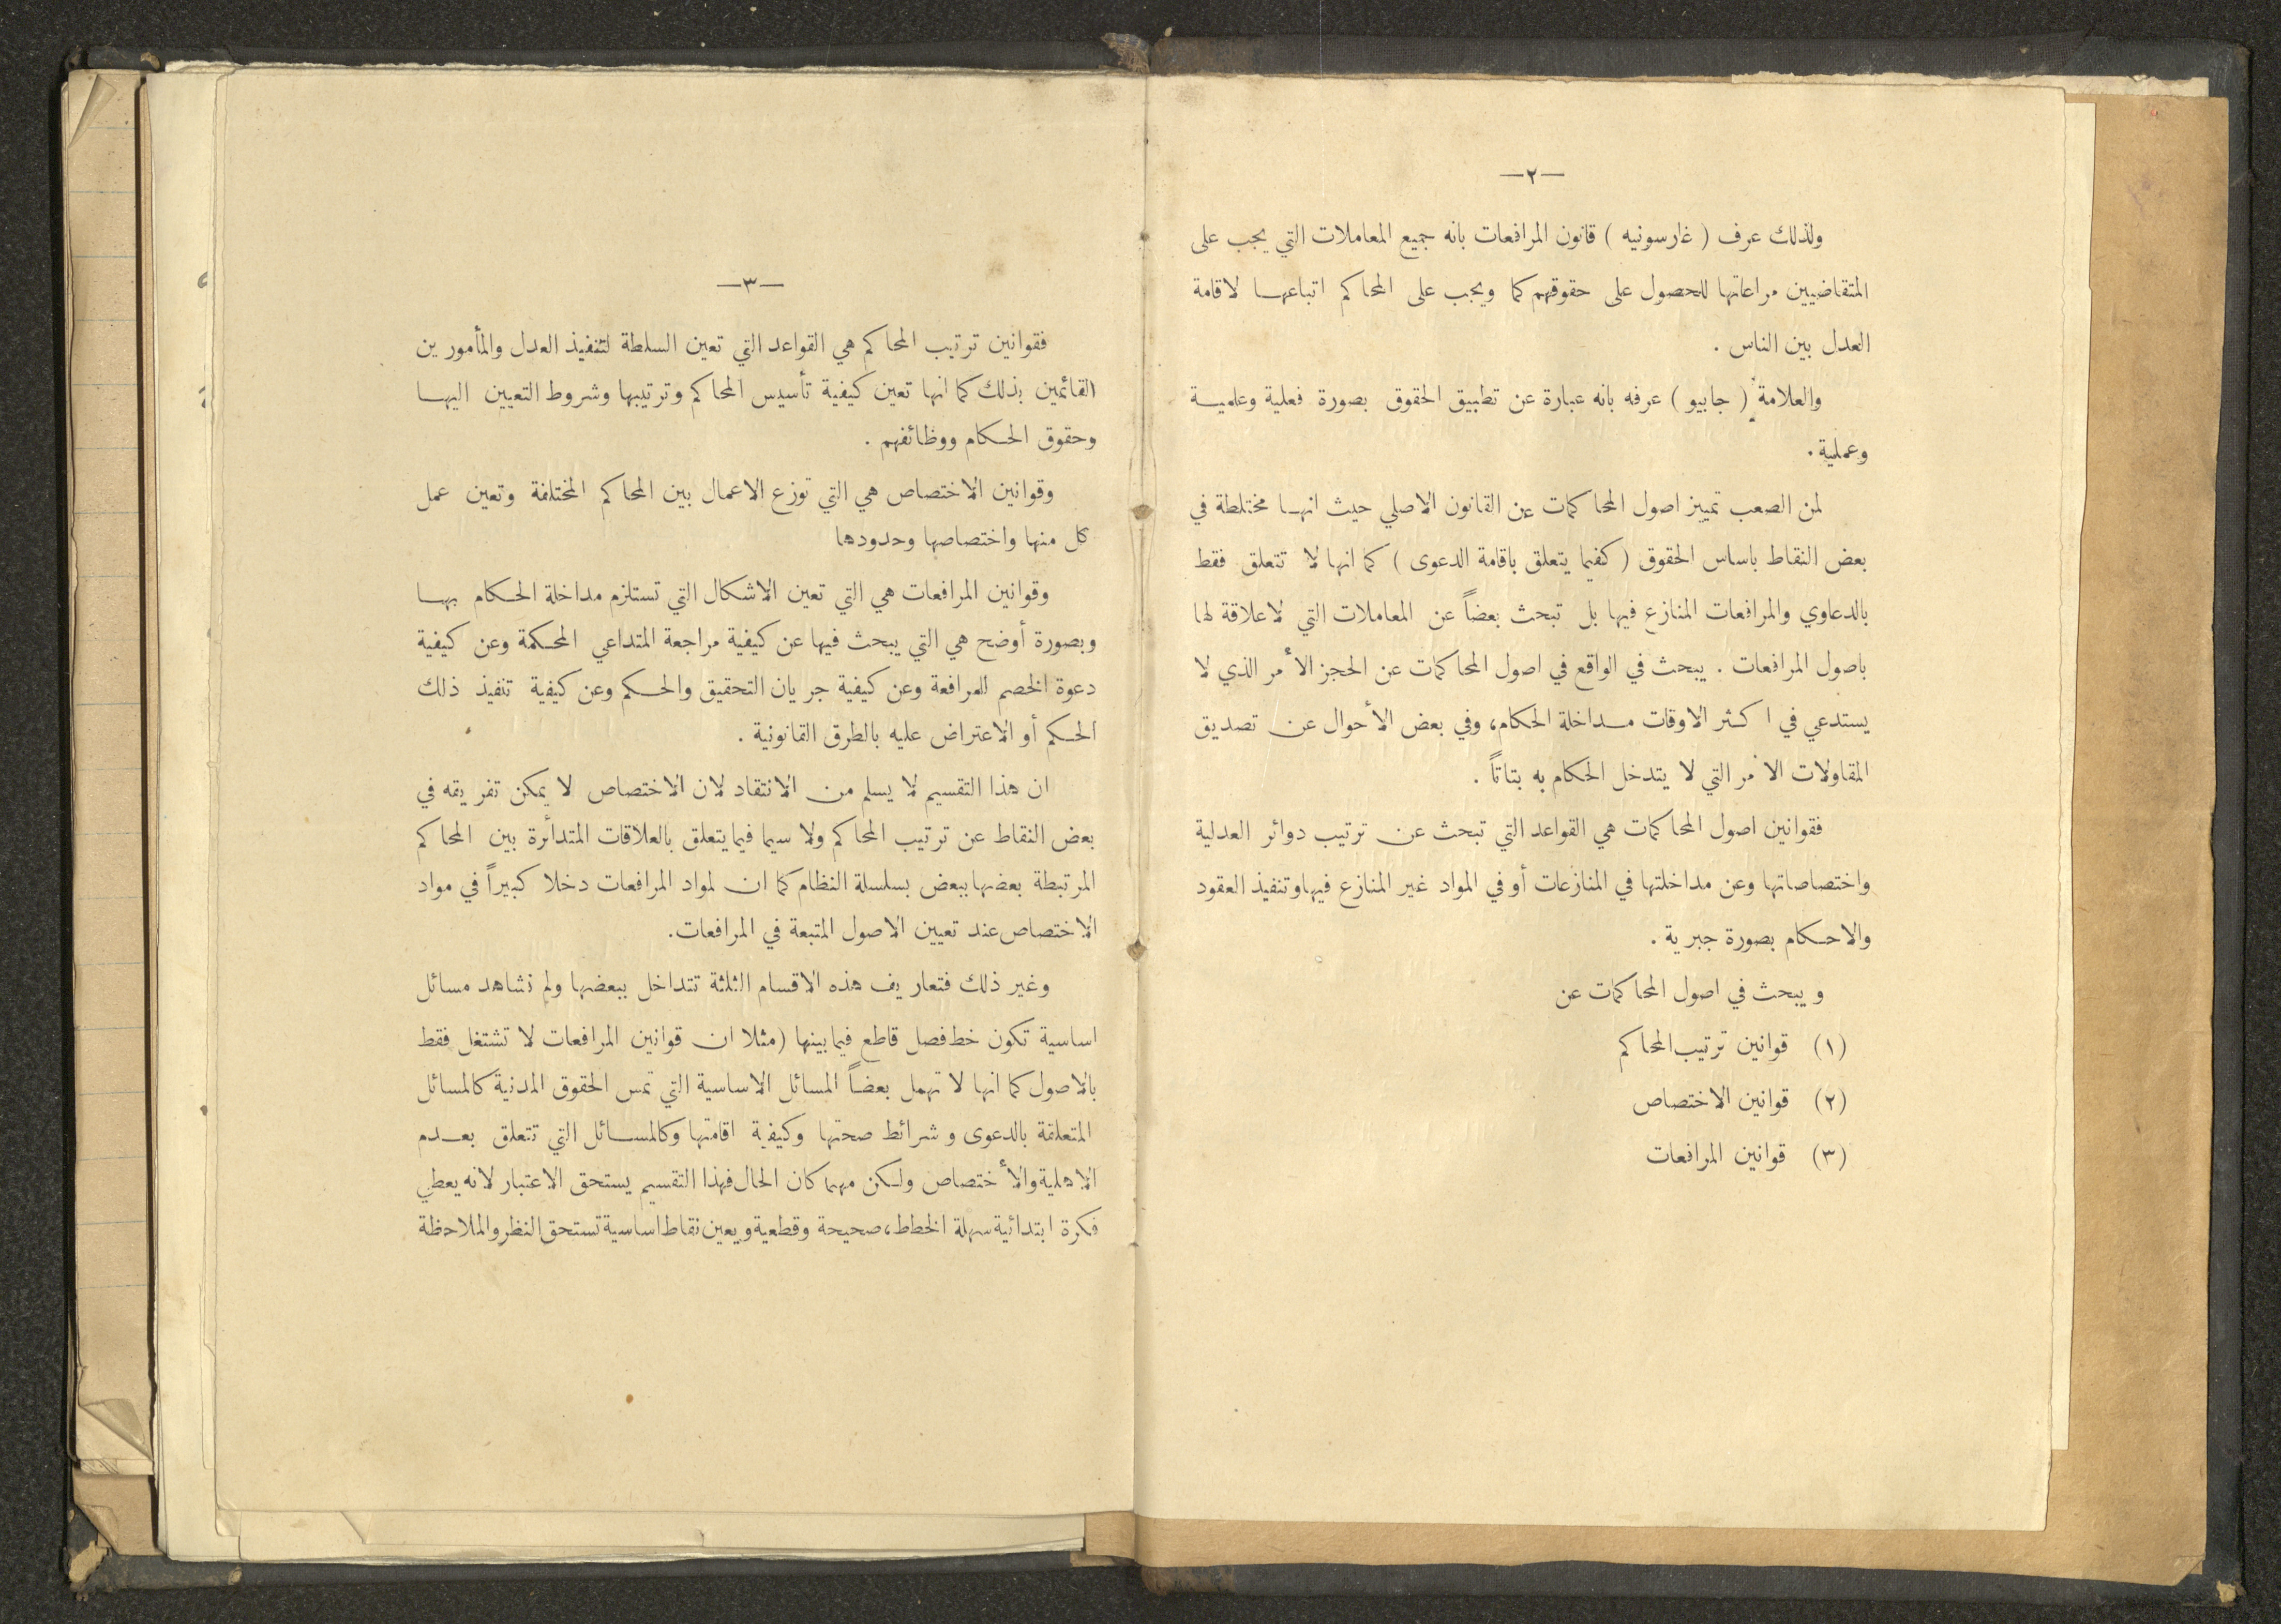 —٢—
ولذلك عرف ( غارسونيه ) قانون المرافعات بانه جميع المعاملات التي يجب على
المتقاضيين مراعاتها للحصول على حقوقهم كما ويجب على المحاكم اتباعها لاقامة
العدل بين الناس .
والعلامة ( جابيو ) عرفه بانه عبارة عن تطبيق الحقوق بصورة فعلية وعلمية
وعملية .
لمن الصعب تمييز اصول المحاكمات عن القانون الاصلي حيث انها مختلطة في
بعض النقاط باساس الحقوق ( كفيما يتعلق باقامة الدعوى ) كما انها لا تتعلق فقط
بالدعاوي والمرافعات المنازع فيها بل تبحث بعضاً عن المعاملات التي لاعلاقة لها
باصول المرافعات . يبحث في الواقع في اصول المحاكمات عن الحجز الأمر الذي لا
يستدعي في اكثر الاوقات مداخلة الحكام، وفي بعض الأحوال عن تصديق
المقاولات الأمر التي لا يتدخل الحكام به بتاتاً .
فقوانين اصول المحاكمات هي القواعد التي تبحث عن ترتيب دوائر العدلية
واختصاصاتها وعن مداخلتها في المنازعات أو في المواد غير المنازع فيها وتنفيذ العقود
والاحكام بصورة جبرية .
ويبحث في اصول المحاكمات عن
(١) قوانين ترتيب المحاكم
(٢) قوانين الاختصاص
(٣) قوانين المرافعات
—٣—
فقوانين ترتيب المحاكم هي القواعد التي تعين السلطة لتنفيذ العدل والمأمورين
القائمين بذلك كما انها تعين كيفية تأسيس المحاكم وترتيبها وشروط التعيين اليها
وحقوق الحكام ووظائفهم .
وقوانين الاختصاص هي التي توزع الاعمال بين المحاكم المختلفة وتعين عمل
كل منها واختصاصها وحدودها
وقوانين المرافعات هي التي تعين الاشكال التي تستلزم مداخلة الحكام بها
وبصورة أوضح هي التي يبحث فيها عن كيفية مراجعة المتداعي المحكمة وعن كيفية
دعوة الخصم للمرافعة وعن كيفية جريان التحقيق والحكم وعن كيفية تنفيذ ذلك
الحكم أو الاعتراض عليه بالطرق القانونية .
ان هذا التقسيم لا يسلم من الانتقاد لان الاختصاص لا يمكن تفريقه في
بعض النقاط عن ترتيب المحاكم ولا سيما فيما يتعلق بالعلاقات المتدائرة بين المحاكم
المرتبطة بعضها ببعض بسلسلة النظام كما ان لمواد المرافعات دخلا كبيراً في مواد
الاختصاص عند تعيين الاصول المتبعة في المرافعات.
وغير ذلك فتعاريف هذه الاقسام الثلثة تتداخل ببعضها ولم نشاهد مسائل
اساسية تكون خط فصل قاطع فيما بينها (مثلا ان قوانين المرافعات لا تشتغل فقط
بالاصول كما انها لا تهمل بعضاً المسائل الاساسية التي تمس الحقوق المدنية كالمسائل
المتعلقة بالدعوى وشرائط صحتها وكيفية اقامتها وكالمسائل التي تتعلق بعدم
الاهلية والأختصاص ولكن مهما كان الحال فهذا التقسيم يستحق الاعتبار لانه يعطي
فكرة ابتدائية سهلة الخطط، صحيحة وقطعية ويعين نقاط اساسية تستحق النظر والملاحظة